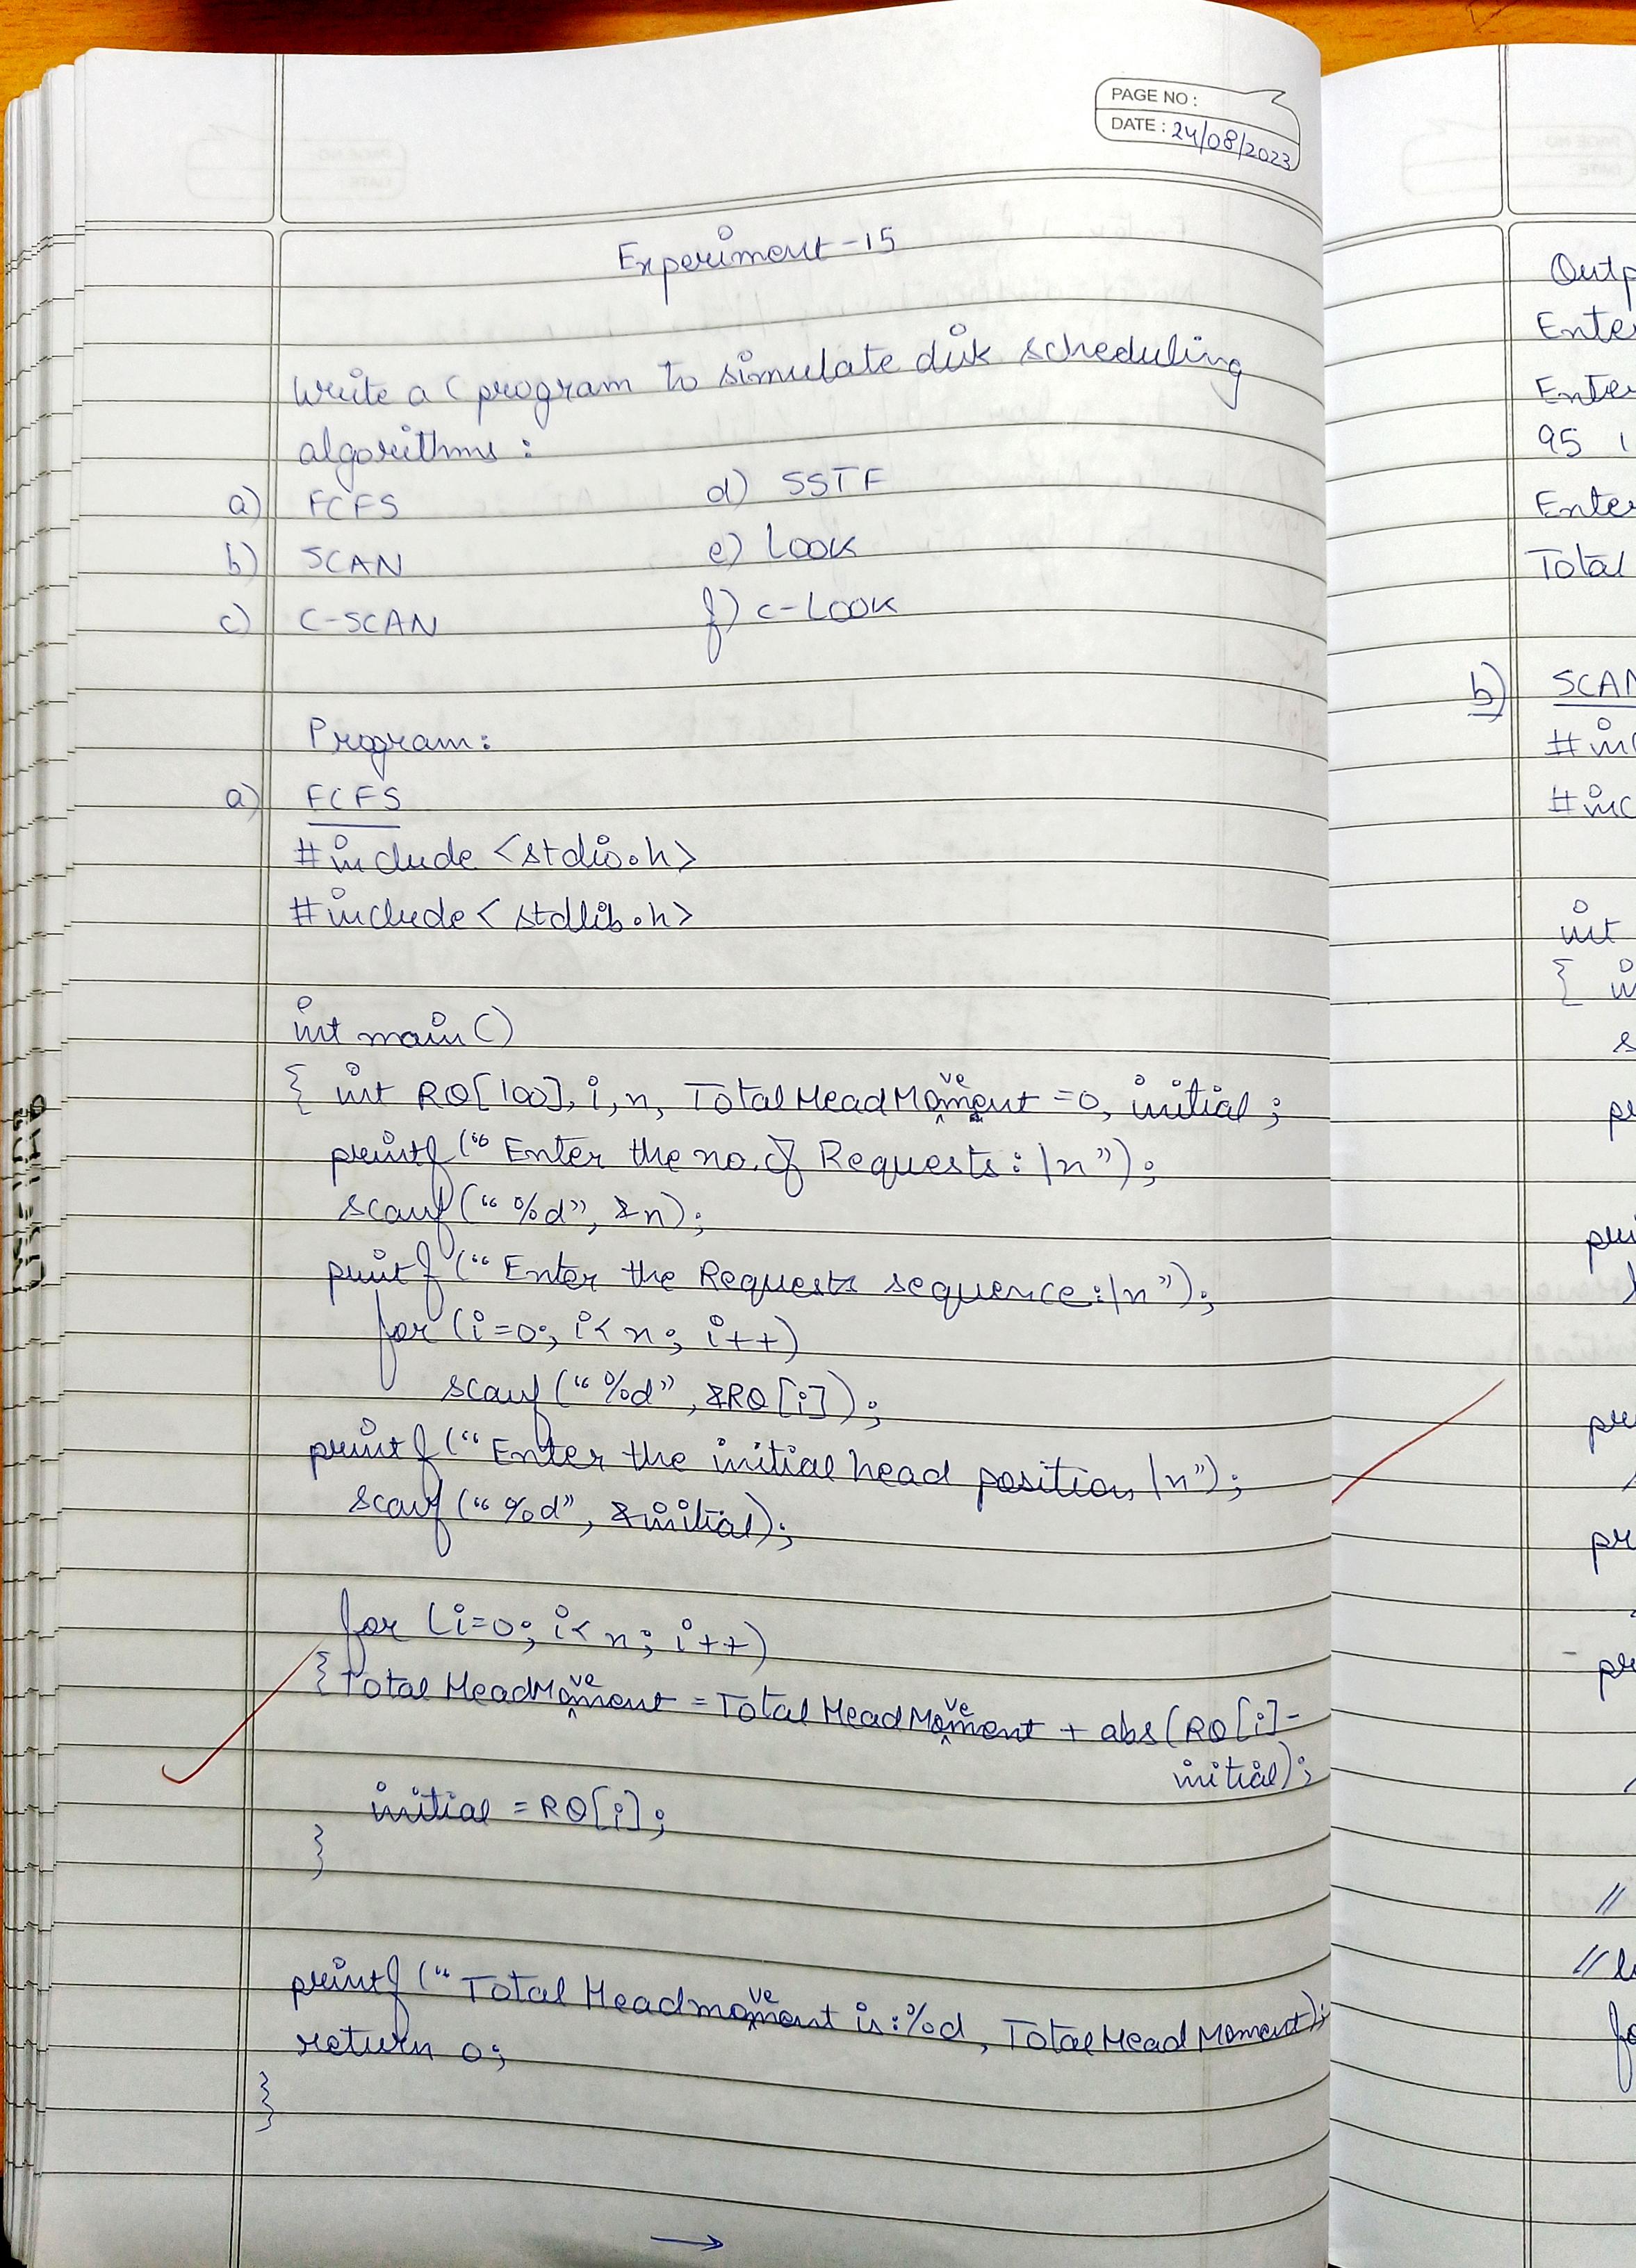 PAGE NO :
DATE : 24/08/2023
Experiment - 15
Write a C program to simulate disk scheduling
algorithms :
a) FCFS d) SSTF
b) SCAN e) LOOK
c) C-SCAN f) C-LOOK
Program:
a) FCFS
#include <stdio.h>
#include <stdlib.h>
int main()
{ int RQ[100], i, n, TotalHeadMovement = 0, initial ;
printf (“ Enter the no. of Requests : \n ”) ;
scanf (“ %d”, &n) ;
printf (“ Enter the Requests sequence : \n ”) ;
for (i=0 ; i< n ; i++)
scanf (“ %d”, &RQ [i] ) ;
printf (“ Enter the initial head position \n”) ;
scanf (“ %d”, &initial) ;
for (i=0 ; i< n ; i++)
{ Total HeadMovement = Total HeadMovement + abs(RQ[i] -
initial) ;
initial = RQ[i] ;
}
printf (“ Total Headmovement is : %d, TotalHeadMoment) ;
return 0 ;
}
→
Enter
Enter
95
Enter
Total
b) SCAN
int
{
//
//